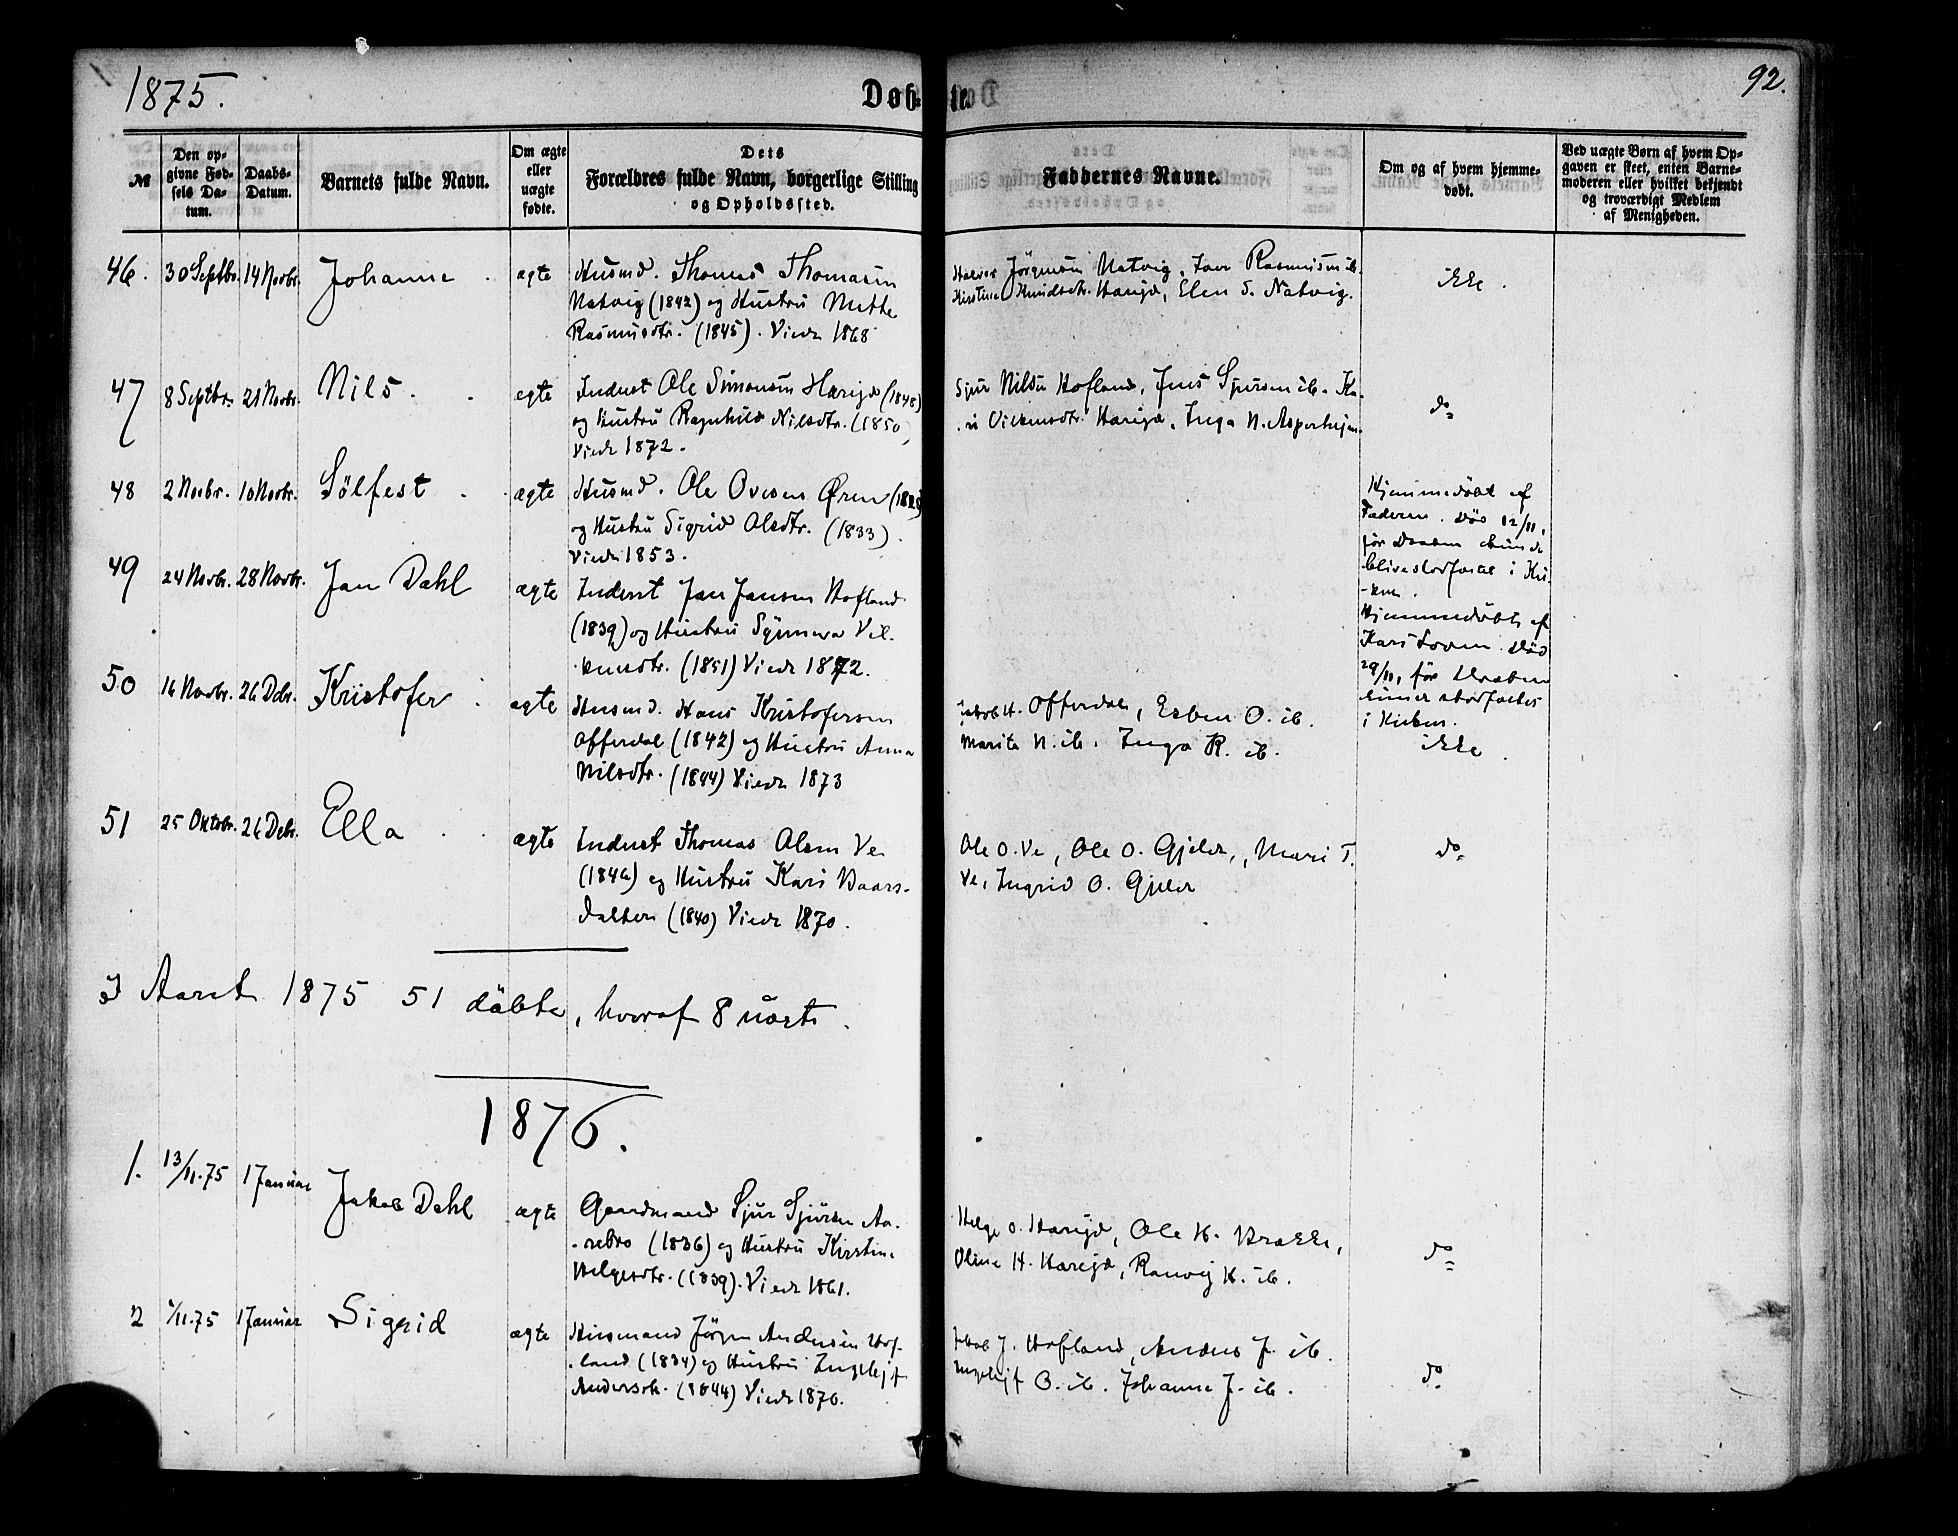 1875.
Døb-
te.
92.
№
Den op-
givne Fød-
sels Da-
tum.
Daabs-
Datum.
Barnets fulde Navn.
Om ægte
eller
uægte
fødte.
Dets
Forældres fulde Navn, borgerlige Stilling
og Opholdssted.
Faddernes Navne.
Om og af hvem hjemme-
døbt.
Ved uægte Børn af hvem Op-
gaven er skeet, enten Barne-
moderen eller hvilket bekjendt
og troværdigt Medlem
af Menigheden.
46.
30 Septbr.
14 Novbr.
Johanne
ægte
Husmd. Thomas Thomasen
Natvig (1842) og Hustru Mette
Rasmusdtr. (1845). Viede 1868
Jörgensen Natvig, Rasmussen ib.
Kirstine Knudsdtr. Hareide, Elen S. Natvig.
ikke.
47
8 Septbr.
21 Novbr.
Nils.
ægte
Inderst Ole Simonsen Hareide (1848)
og Hustru Ragnhild Nilsdtr. (1850)
Viede 1872.
Sjur Nilsen Hofland, Jens Sjursen ib. Ka-
ri Hareide, Inga N.
do
48
2 Novbr.
10 Novbr.
Sölfest
ægte
Husmd. Ole Ovesen Øren
og Hustru Sigrid Olsdtr. (1833).
Viede 1853.
Hjemmedöbt af
Faderen. Död 12/11,
för Daaben kunde
blive stadfæstet i Kir-
-ken.
49
24 Novbr.
28 Novbr.
Jan Dahl
ægte
Inderst Jan Jansen Hofland
(1839) og Hustru Synneva Vil-
-kensdtr. (1851) Viede 1872.
Hjemmedöbt af
Död
29/11, för Daaben
kunde stadfæstes
i Kirken.
50
16 Novbr.
26 Debr.
Kristofer
ægte
Husmd. Hans Kristofersen
Offerdal (1842) og Hustru Anna
Nilsdtr. (1844) Viede 1873
Jakob H. Offerdal, Esben O. ib.
Marita N. ib. Inga R. ib.
ikke
51
25 Oktobr.
26 Debr.
Ella
ægte
Inderst Thomas Olsen Ve
(1846) og Hustru Kari Baars-
datter (1840) Viede 1870.
Ole O. Ve, Ole O. Gjelde, Mari T.
Ve, Ingrid O. Gjelde
do
I Aaret 1875 51 döbte, hvoraf 8 uægte.
1876.
1.
13/11.75
1 Januar
Jakob Dahl
ægte
Gaardmand Sjur Sjursen Aa-
-rebro (1836) og Hustru Kirstine
Helgesdtr. (1839). Viede 1861.
Helge O. Hareide, Ole H. Brække,
Oline H. Hareide, Ranveig K. ib.
do
2
1/11.75
1 Januar
Sigrid
ægte
Husmand Jörgen Andersen Hof-
-land (1834) og Hustru Ingebjørg
Andersdtr. (1844) Viede 1870.
Jakob J. Hofland, Anders J. ib.
O. ib. Johanne J. ib.
do